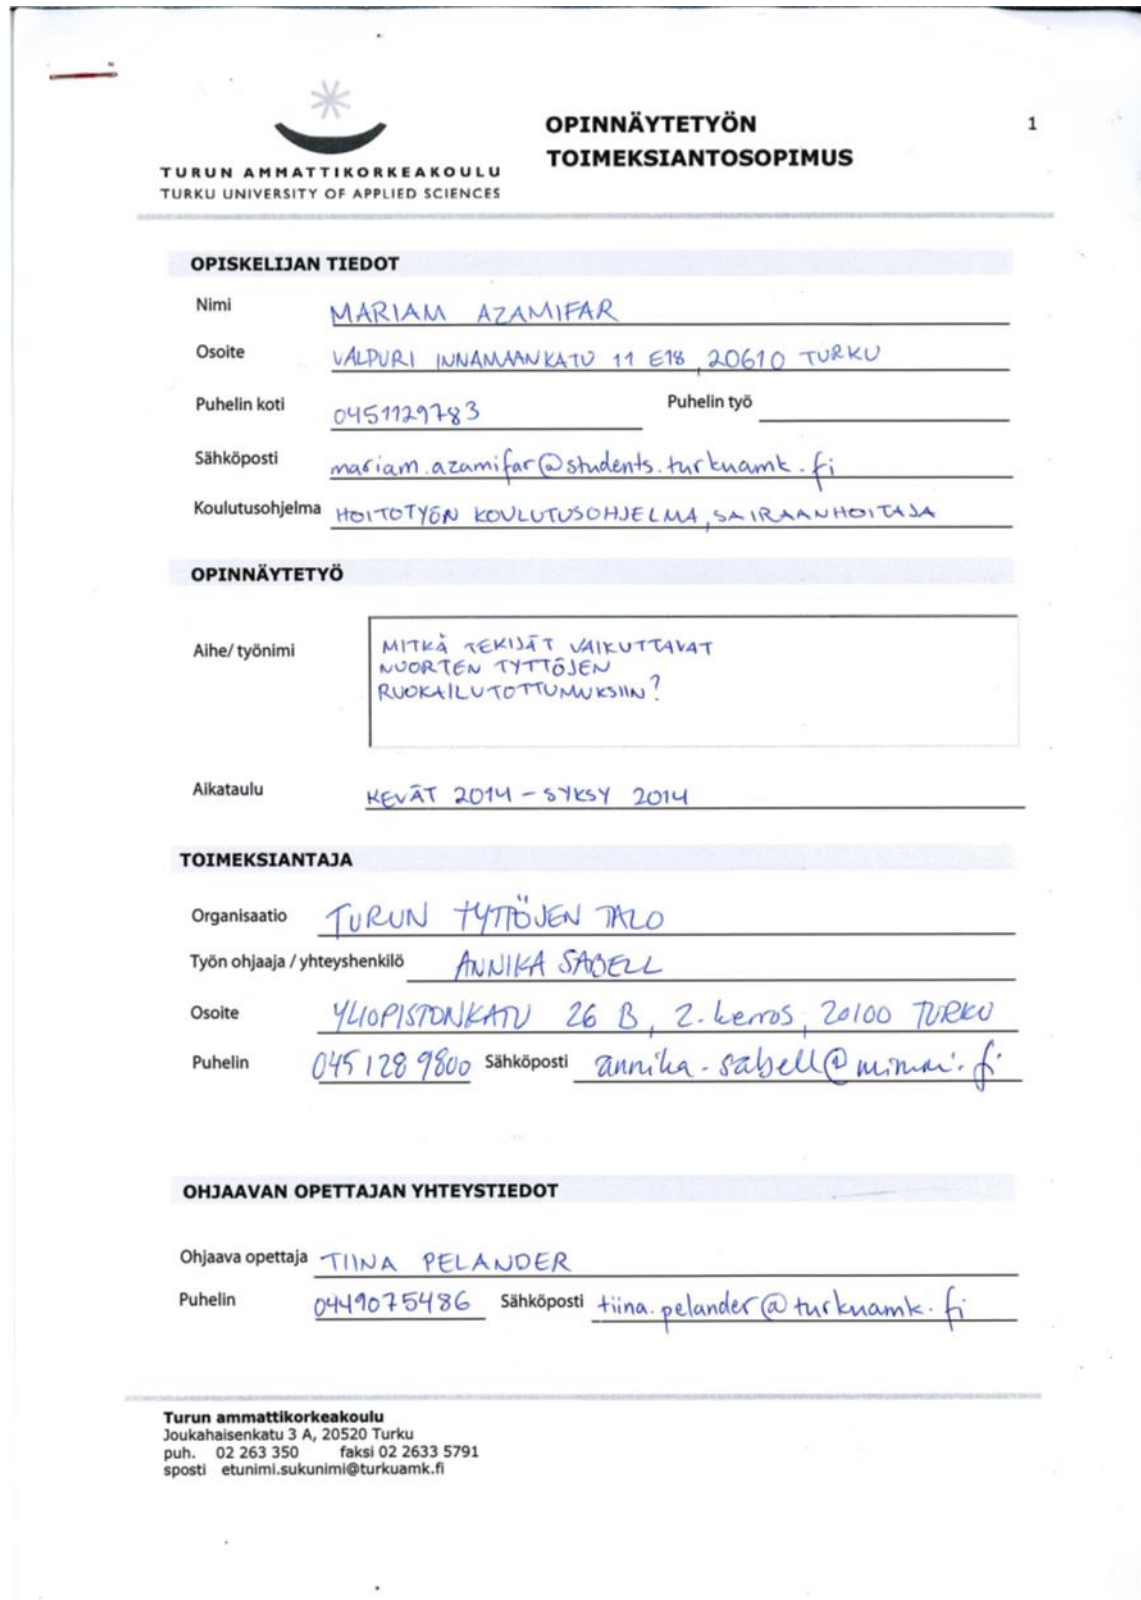 OPINNÄYTETYÖN
TOIMEKSIANTOSOPIMUS
1
TURUN AMMATTIKORKEAKOULU
TURKU UNIVERSITY OF APPLIED SCIENCES
OPISKELIJAN TIEDOT
Nimi MARIAM AZAMIFAR
Osoite VALPURI INNAMAANKATU 11 E18, 20610 TURKU
Puhelin koti 0451129783 Puhelin työ
Sähköposti mariam.azamifar@students.turkuamk.fi
Koulutusohjelma HOITOTYÖN KOULUTUSOHJELMA, SAIRAANHOITAJA
OPINNÄYTETYÖ
Aihe/ työnimi MITKÄ TEKIJÄT VAIKUTTAVAT
NUORTEN TYTTÖJEN
RUOKAILUTOTTUMUKSIIN?
Aikataulu KEVÄT 2014 – SYKSY 2014
TOIMEKSIANTAJA
Organisaatio TURUN TYTTÖJEN TALO
Työn ohjaaja / yhteyshenkilö ANNIKA SABELL
Osoite YLIOPISTONKATU 26 B, 2. kerros, 20100 TURKU
Puhelin 045 128 9800 Sähköposti
OHJAAVAN OPETTAJAN YHTEYSTIEDOT
Ohjaava opettaja TIINA PELANDER
Puhelin 0449075486 Sähköposti tiina.pelander@turkuamk.fi
Turun ammattikorkeakoulu
Joukahaisenkatu 3 A, 20520 Turku
puh. 02 263 350 faksi 02 2633 5791
sposti etunimi.sukunimi@turkuamk.fi